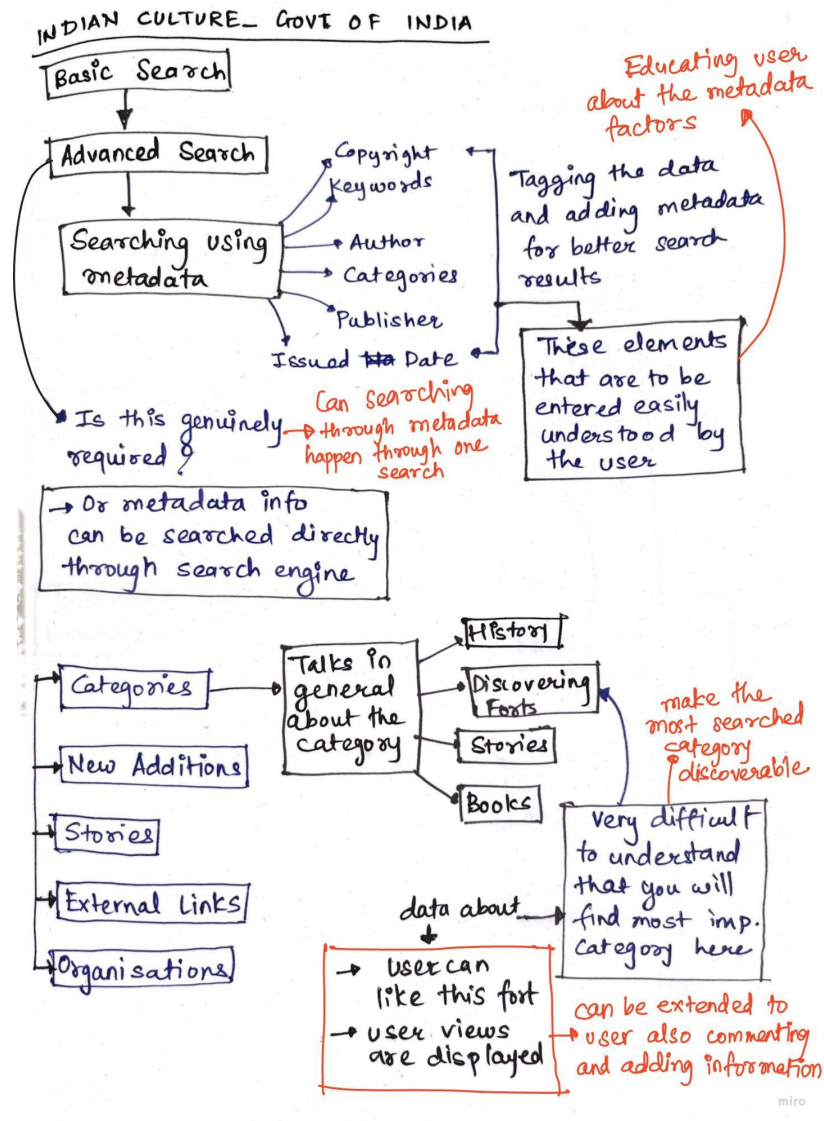 INDIAN CULTURE_ GOVT OF INDIA
Basic Search
Advanced Search
Searching using
metadata
Copyright
Keywords
Author
Categories
Publisher
Issued Date
Tagging the data
and adding metadata
for better search
results
Educating user
about the metadata
factors
These elements
that are to be
entered easily
understood by
the user
Is this genuinely
required?
Can searching
through metadata
happen through one
search
→ Or metadata info
can be searched directly
through search engine
Categories
New Additions
Stories
External Links
Organisations
Talks in
general
about the
category
History
Discovering
Forts
Stories
Books
make the
most searched
category
discoverable
Very difficult
to understand
that you will
find most imp.
category here
data about
→ user can
like this fort
→ user views
are displayed
can be extended to
user also commenting
and adding information
miro